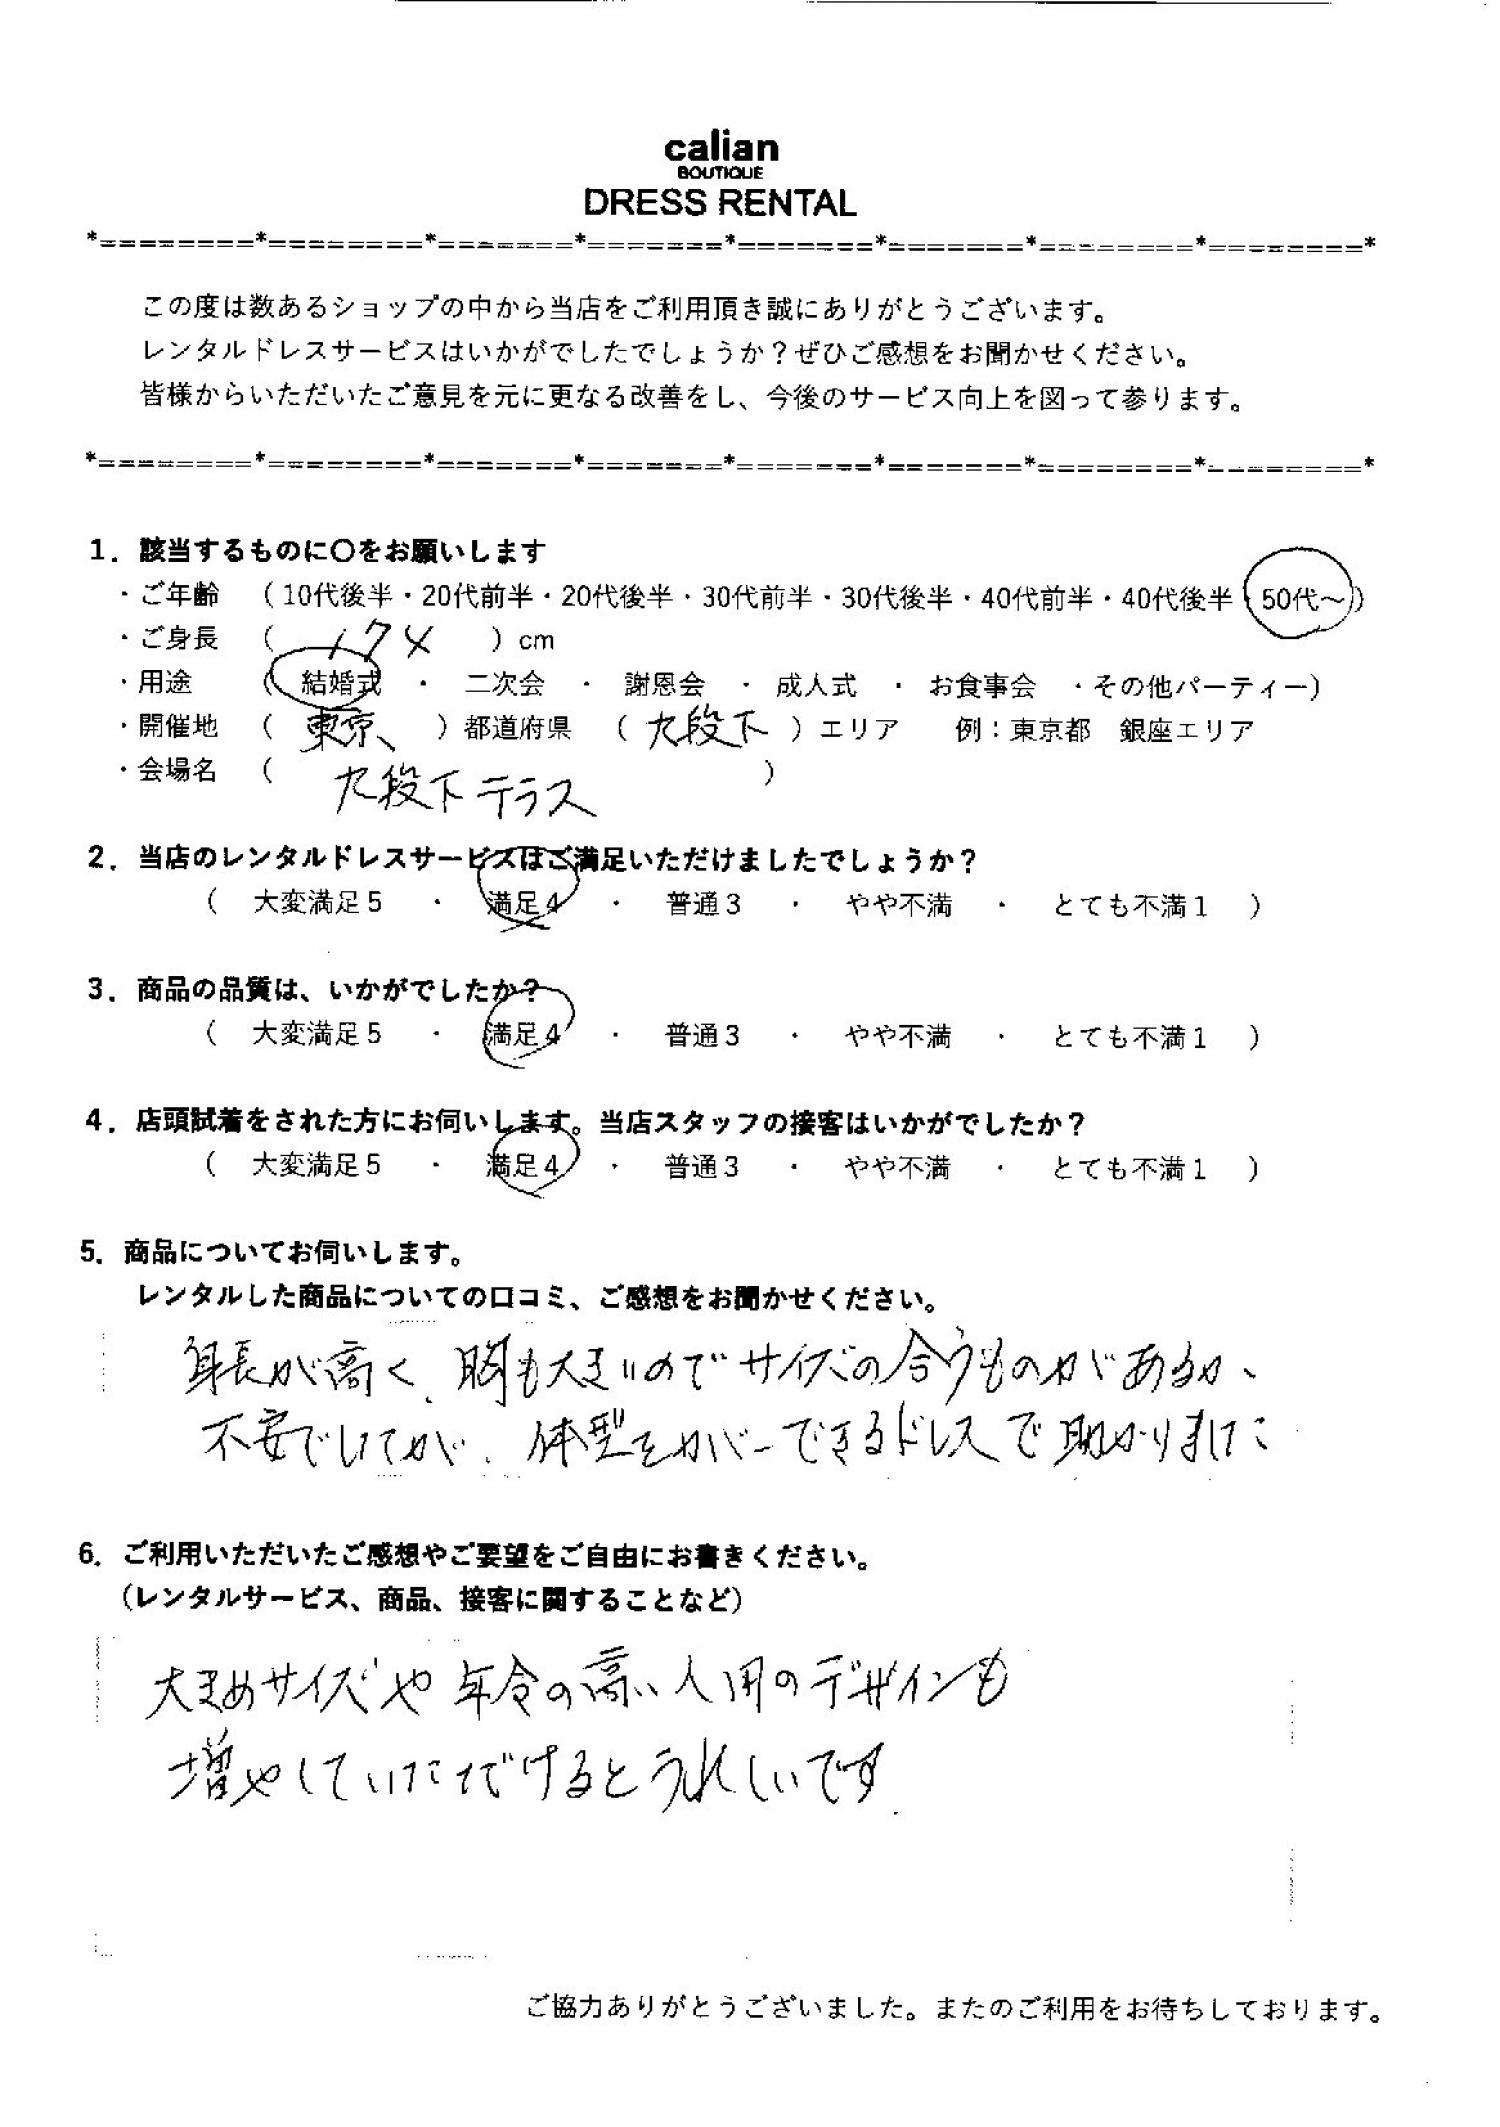 calian
BOUTIQUE
DRESS RENTAL
*========*========*=======*=======*=======*=======*========*========*
この度は数あるショップの中から当店をご利用頂き誠にありがとうございます。
レンタルドレスサービスはいかがでしたでしょうか？ぜひご感想をお聞かせください。
皆様からいただいたご意見を元に更なる改善をし、今後のサービス向上を図って参ります。
*========*========*=======*=======*=======*=======*========*========*
1．該当するものに〇をお願いします
・ご年齢　（10代後半・20代前半・20代後半・30代前半・30代後半・40代前半・40代後半・50代～）
・ご身長　（ 174 ）cm
・用途　（ 結婚式 ・ 二次会 ・ 謝恩会 ・ 成人式 ・ お食事会 ・その他パーティー）
・開催地　（ 東京 ）都道府県　（ 九段下 ）エリア　例：東京都　銀座エリア
・会場名　（ 九段下テラス ）
2．当店のレンタルドレスサービスはご満足いただけましたでしょうか？
（ 大変満足5 ・ 満足4 ・ 普通3 ・ やや不満 ・ とても不満1 ）
3．商品の品質は、いかがでしたか？
（ 大変満足5 ・ 満足4 ・ 普通3 ・ やや不満 ・ とても不満1 ）
4．店頭試着をされた方にお伺いします。当店スタッフの接客はいかがでしたか？
（ 大変満足5 ・ 満足4 ・ 普通3 ・ やや不満 ・ とても不満1 ）
5．商品についてお伺いします。
レンタルした商品についての口コミ、ご感想をお聞かせください。
身長が高く、胸も大きいのでサイズの合うものがあるか、
不安でしたが、体型をカバーできるドレスで助かりました
6．ご利用いただいたご感想やご要望をご自由にお書きください。
（レンタルサービス、商品、接客に関することなど）
大きめサイズや年令の高い人用のデザインも
増やしていただけるとうれしいです
ご協力ありがとうございました。またのご利用をお待ちしております。